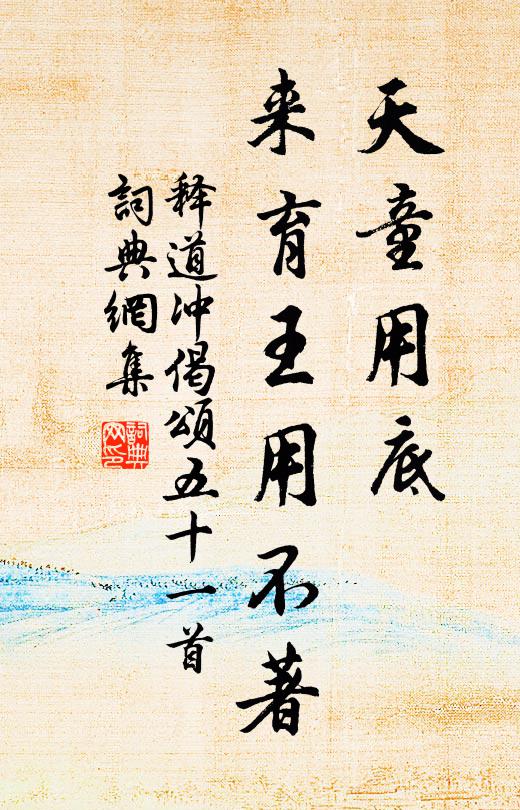 天童用底
来育王用不著
释道冲偈頌五十一首
詞典網集
詞典